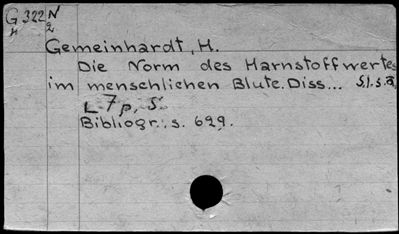 G 322 N
n 2
Gemeinhardt, H.
Die Norm des Harnstoffwertes
im menschlichen Blute. Diss... S.l.s.a.
L 7 p, S.
Bibliogr.: s. 629.